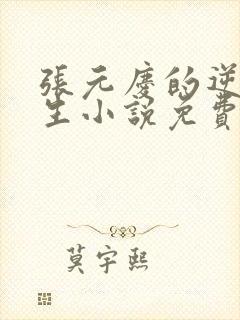 張元慶的逆
生小說免費
莫宇熙